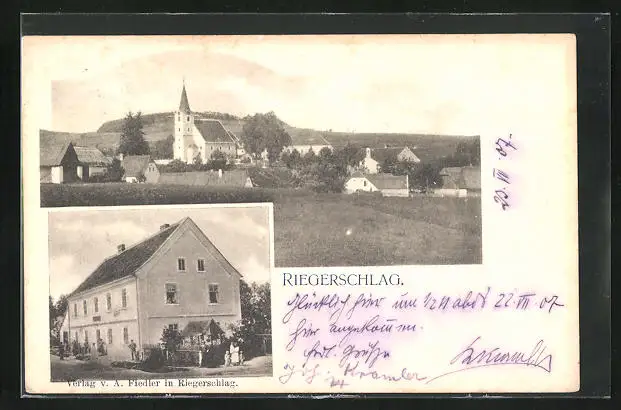 RIEGERSCHLAG.
23. VII. 07.
Glücklich hier um 1/2 11 abds 22. VII. 07
hier angekommen.
Grüße
Kramler
Verlag v. A. Fiedler in Riegerschlag.